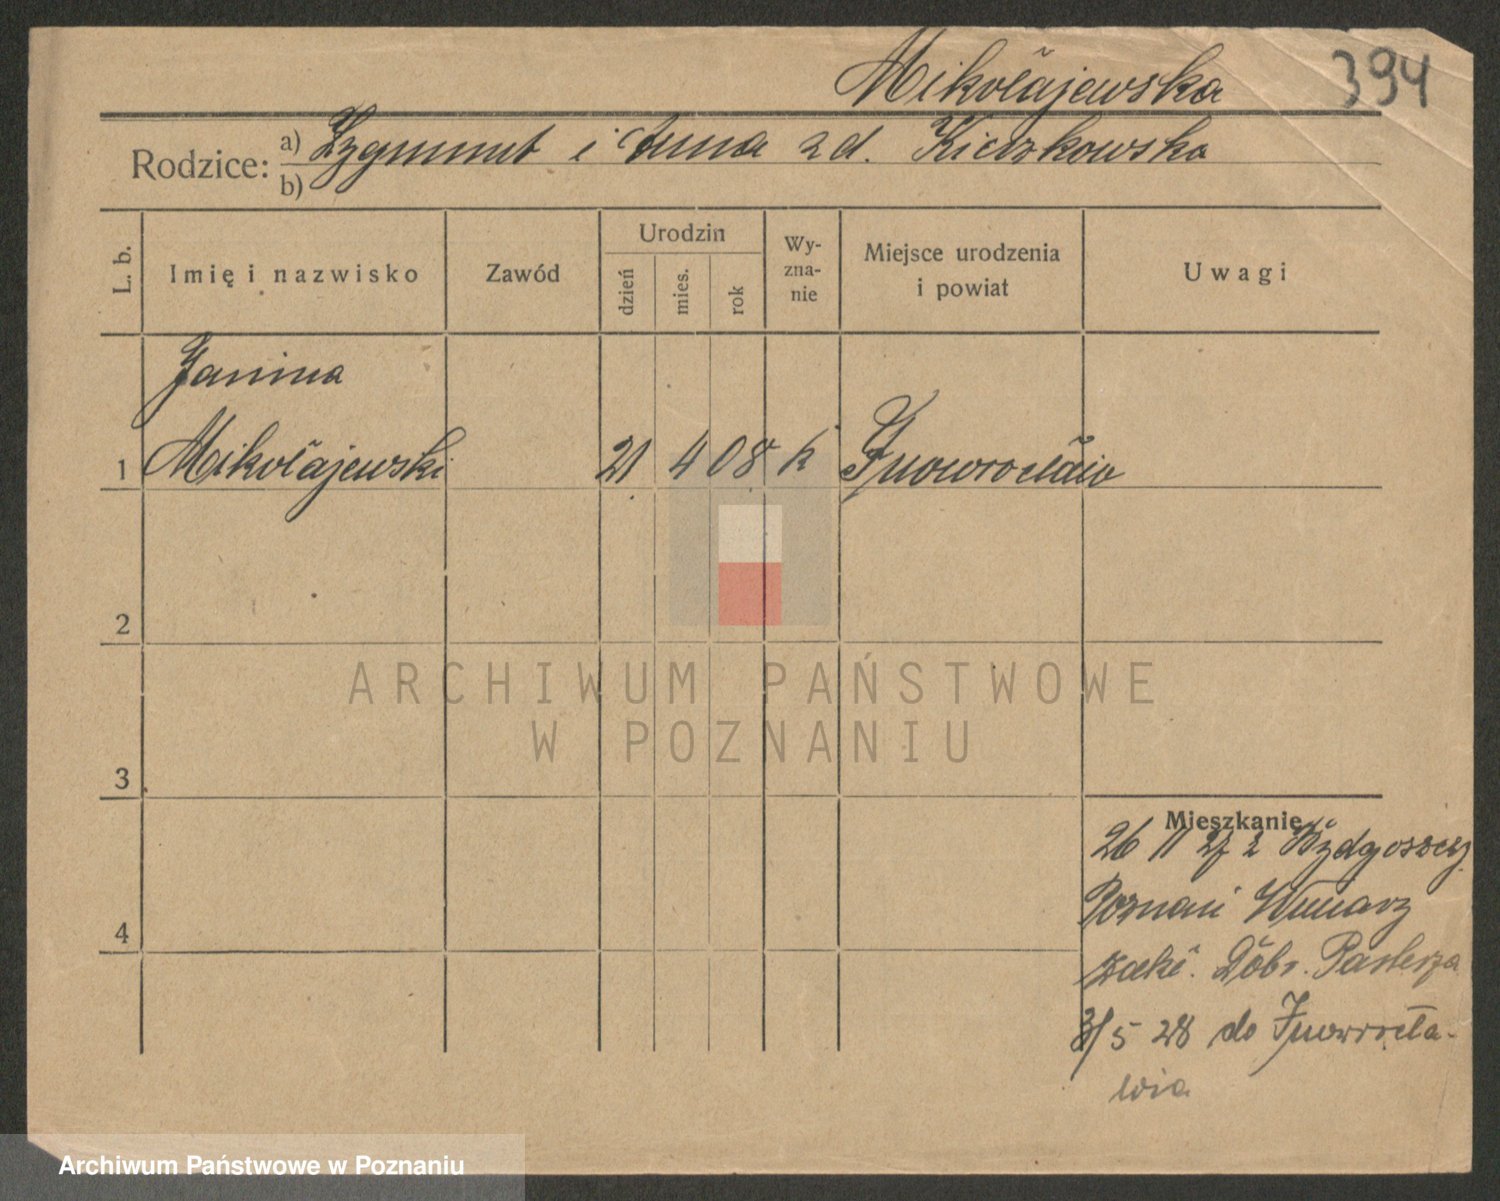 Mikołajewska 394
Rodzice: a) Zygmunt i Anna zd. Kiczkowska
b)
L. b. Imię i nazwisko Zawód Urodzin dzień mies. rok Wyznanie Miejsce urodzenia i powiat Uwagi
Janina
1 Mikołajewski 21 4 08 k Inowrocław
2
3
4
ARCHIWUM PAŃSTWOWE
W POZNANIU
Mieszkanie
26 11 27 z Bydgoszczy
Poznań Winiary
zakł. Dobr. Pasterza
3/5 28 do Inowrocła-
wia
Archiwum Państwowe w Poznaniu